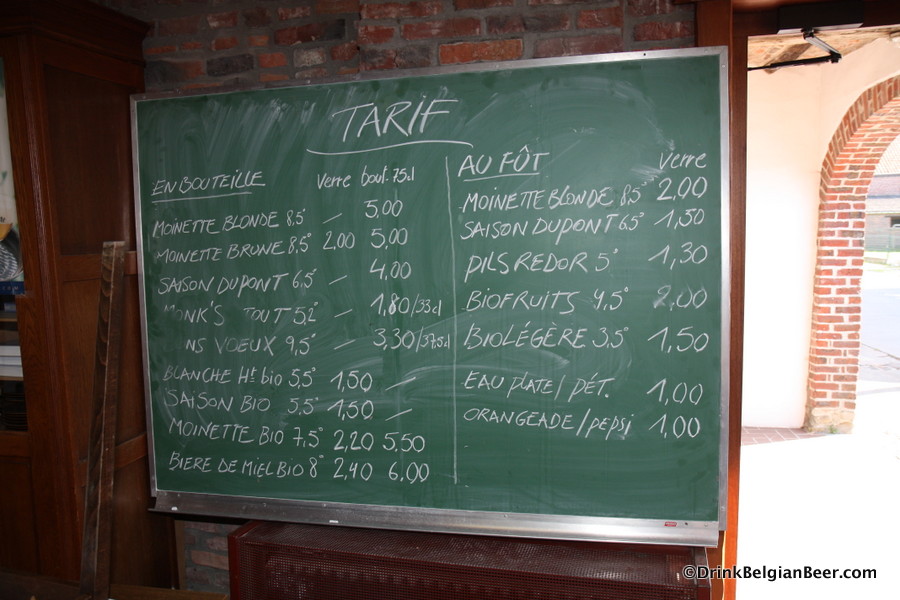 TARIF
EN BOUTEILLE Verre bout. 75cl
MOINETTE BLONDE 8,5° — 5,00
MOINETTE BRUNE 8,5° 2,00 5,00
SAISON DUPONT 6,5° — 4,00
MONK'S STOUT 5,2° — 1,80/33cl
NS VOEUX 9,5° — 3,30/37,5cl
BLANCHE Ht bio 5,5° 1,50 —
SAISON BIO 5,5° 1,50 —
MOINETTE BIO 7,5° 2,20 5,50
BIERE DE MIEL BIO 8° 2,40 6,00
AU FÛT Verre
MOINETTE BLONDE 8,5° 2,00
SAISON DUPONT 6,5° 1,50
PILS REDOR 5° 1,30
BIOFRUITS 4,5° 2,00
BIOLÉGÈRE 3,5° 1,50
EAU PLATE/PÉT. 1,00
ORANGEADE/PEPSI 1,00
©DrinkBelgianBeer.com